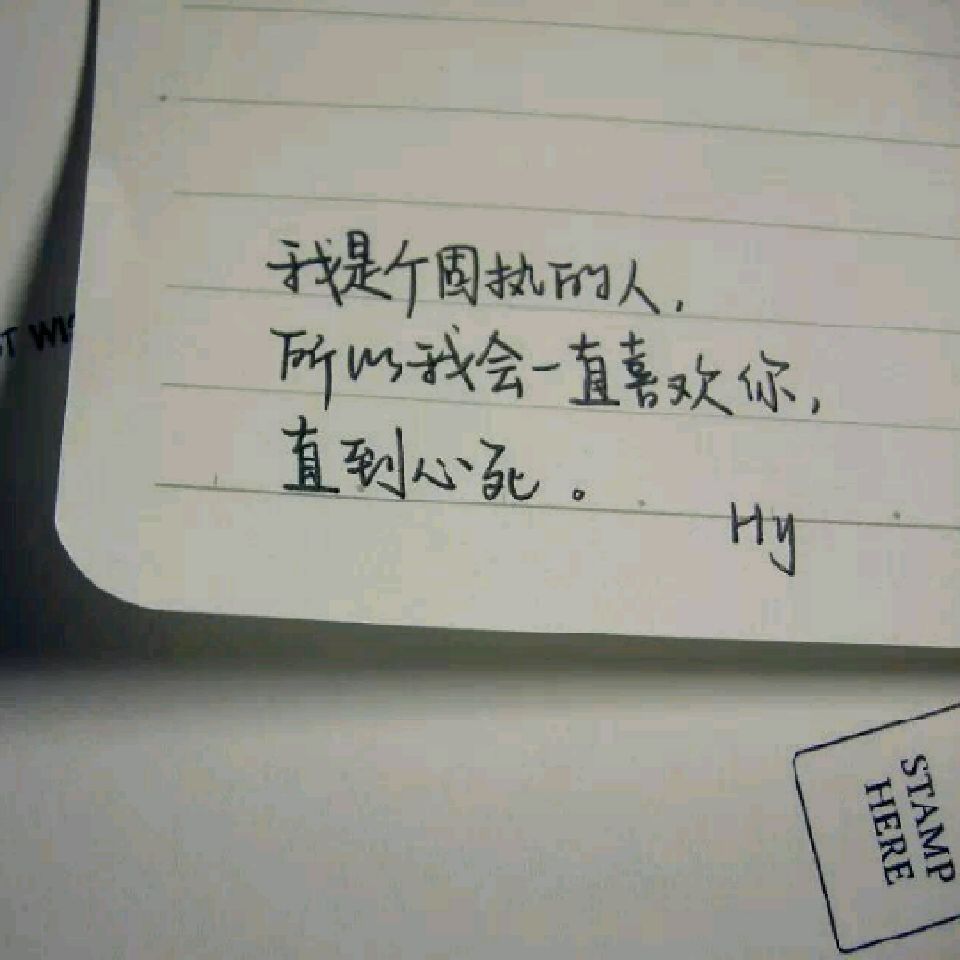 我是个固执的人,
所以我会一直喜欢你,
直到心死。
Hy
STAMP
HERE